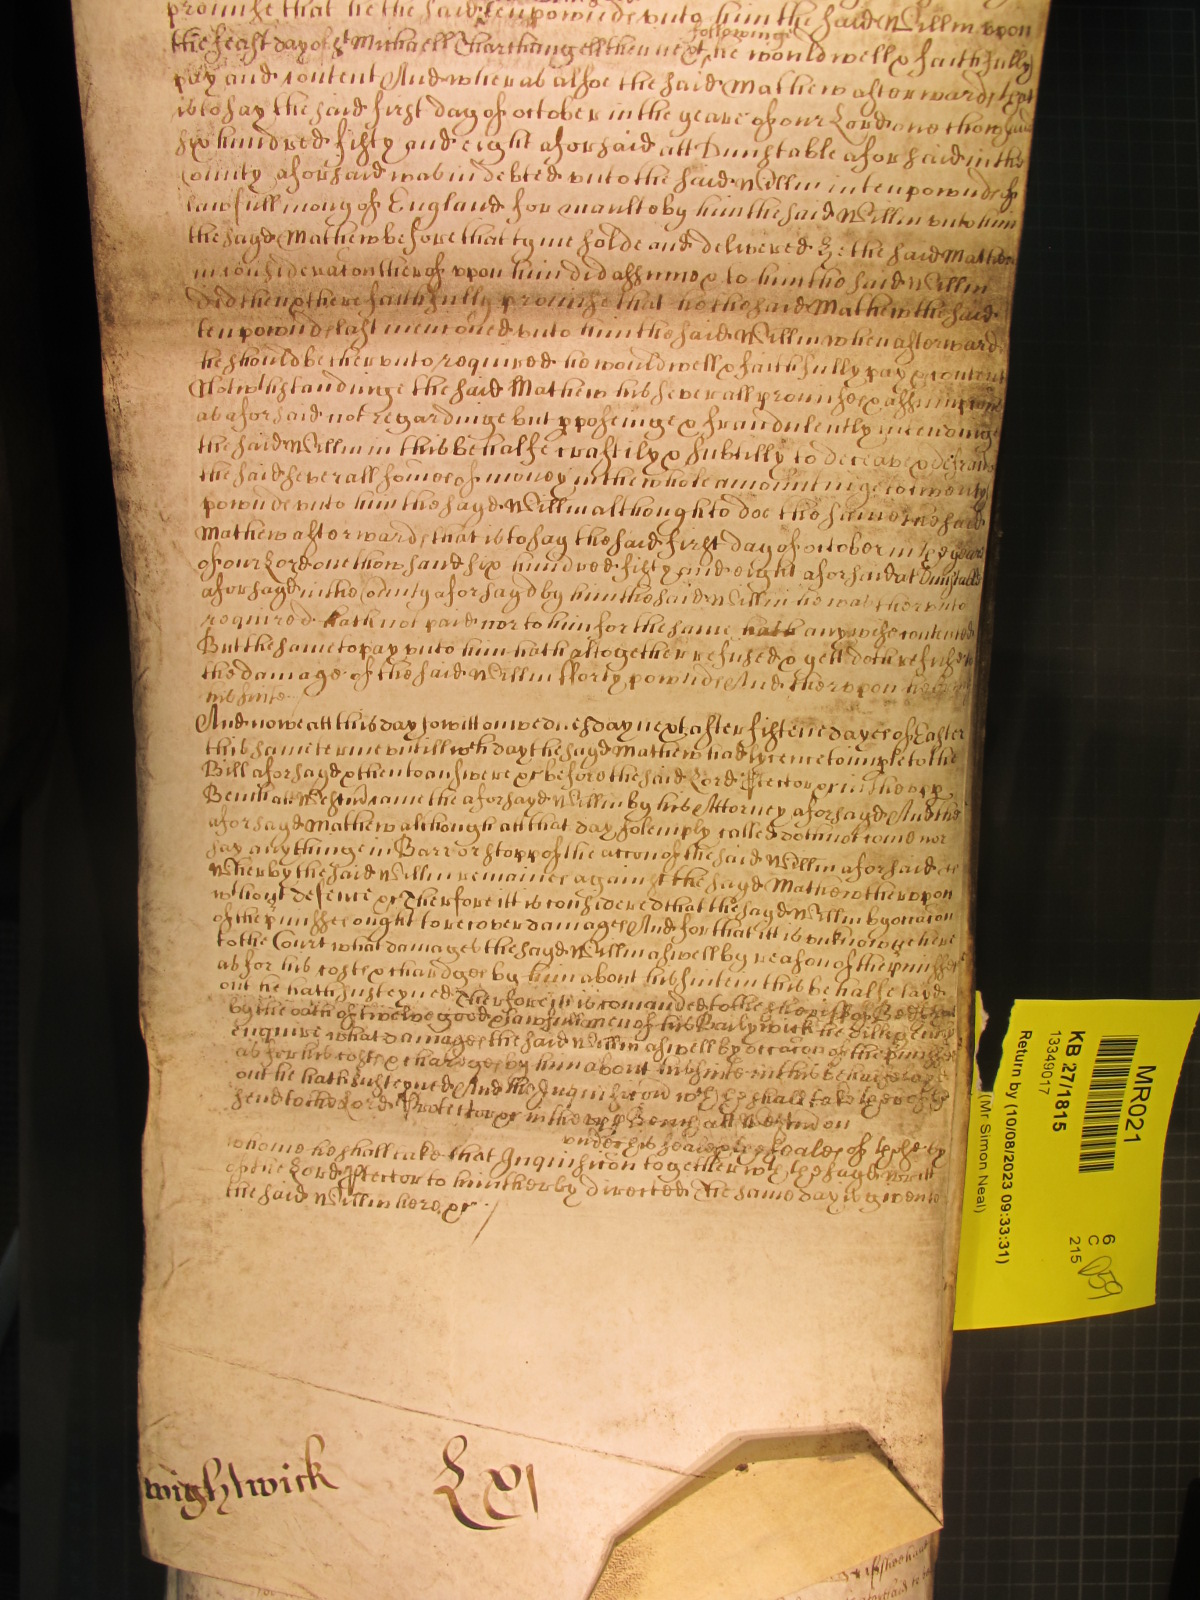 promise that he the said ten pownds unto him the said Willm upon
the feast day of St Michaell Tharchangell then next following he would well & faithfully
pay and content And wheras alsoe the said Mathew afterwards that
is to say the said first day of october in the yeare of our Lord one thowsand
six hundred fifty and eight aforsaid att Dunstable aforsaid in the
County aforsaid was indebted unto the said Willm in ten pownds of
lawfull mony of England for maulte by him the said Willm unto him
the sayd Mathew before that tyme solde and delivered he the said Mathew
in consideracon therof upon him did assume & to him the said Willm
did then & there faithfully promise that he the said Mathew the said
ten pownds last mencōned unto him the said Willm when afterwards
he should be therunto required he would well & faithfully pay & content
Notwthstandinge the said Mathew his severall promises & assumpcons
as aforsaid not regardinge but pposeinge & fraudulently intendinge
the said Willm in this behalfe craftily & subtilly to deceave & defraude
the said severall somes of money in the whole amountinge to twenty
pownds unto him the sayd Willm althought to doe the same the said
Mathew afterwards that is to say the said first day of october in the yeare
of our Lord one thowsand six hundred fifty and eight aforsaid at Dunstable
aforsayd in the County aforsayd by him the said Willm he was therunto
required hath not paid nor to him for the same hath any wise contented
But the same to pay unto him hath altogether refused & yett doth refuse to
the damage of the said Willm fforty pownds And therupon he
his suite
And nowe att this day to witt on wednesday next after fiftene dayes of Easter
this same terme untill wch day the sayd Mathew had lycence to imple to the
Bill aforsayd & then to answere &c before the said Lord Ptector &c in the upp
Bench att Westm came the aforsayd Willm by his Attorney aforsayd And the
aforsayd Mathew although att that day solemply called doth not come nor
say any thinge in Barr or stopp of the accon of the said Willm aforsaid
Wherby the said Willm remaines against the sayd Mathew therupon
wthout defence &c Therfore itt is considered that the sayd Willm by occacon
of the pmisses ought to recover damages And for that itt is unknowne here
to the Court what damages the sayd Willm aswell by reason of the pmisses
as for his costs & chardges by him about his suite in this behalfe layd
out he hath susteyned Therfore itt is comanded to the Sheriff of Bedf that
by the oath of twelve good & lawfull men of his Bailywick he dilligently
enquire what damages the said Willm aswell by occacon of the pmisses
as for his costs & chardges by him about his suite in this behalfe layd
out he hath susteyned And the Inquisicon wch he shall take thereof he
send to the Lord Protector &c in the upp Bench att Westm on
under his seale & the seales of those by
whome he shall take that Inquisicon together wth the sayd writt
of the Lord Ptector to him therby directed The same day is given to
the said Willm here &c
wightwick
MR021
KB 27/1815
13349017
6
C
215
059
Return by (10/08/2023 09:33:31)
(Mr Simon Neal)